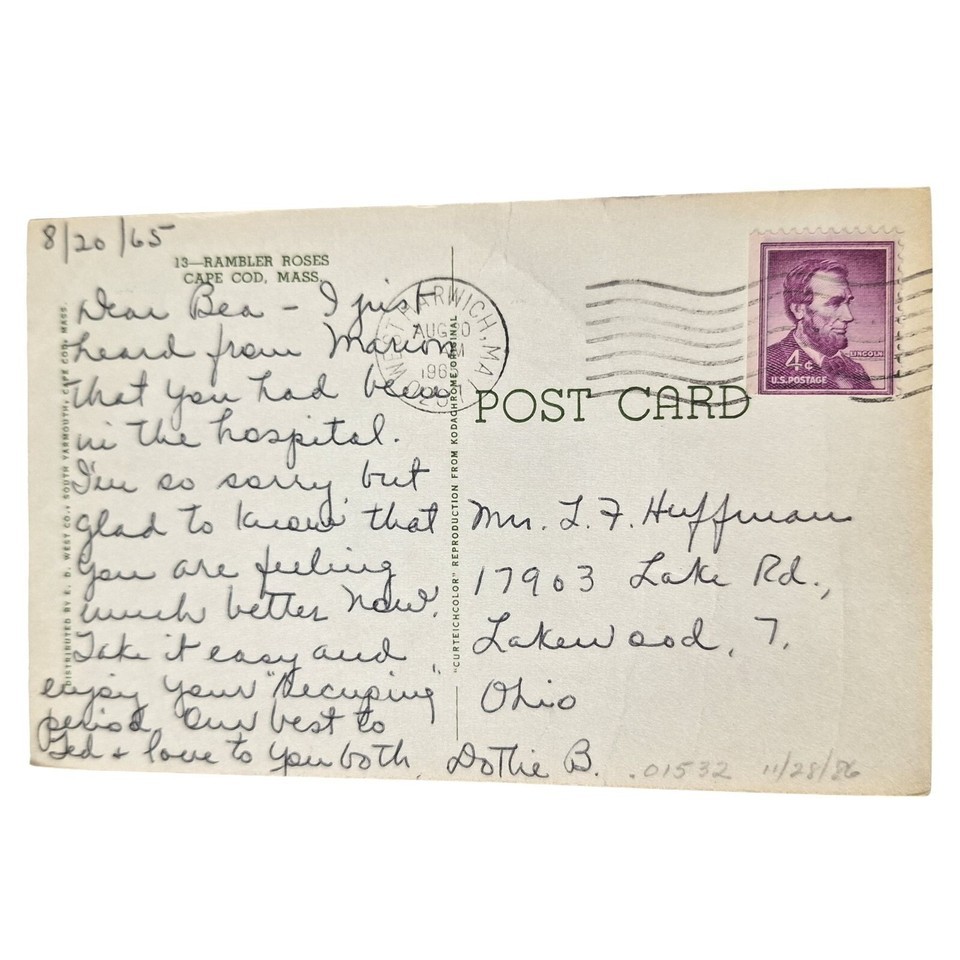 8/20/65
13—RAMBLER ROSES
CAPE COD, MASS.
Dear Bea – I just
heard from Marion
that you had been
in the hospital.
I'm so sorry, but
glad to know that
you are feeling
much better now.
Take it easy and
enjoy your "recuping"
period. Our best to
Ted + love to you both, Dottie B.
DISTRIBUTED BY E. D. WEST CO., SOUTH YARMOUTH, CAPE COD, MASS.
"CURTEICHCOLOR" REPRODUCTION FROM KODACHROME ORIGINAL
WEST HARWICH, MA
AUG 20
AM
POST CARD
4¢
LINCOLN
U.S. POSTAGE
Mrs. L. F. Huffman
17903 Lake Rd.,
Lakewood, 7,
Ohio
.01532 11/28/86